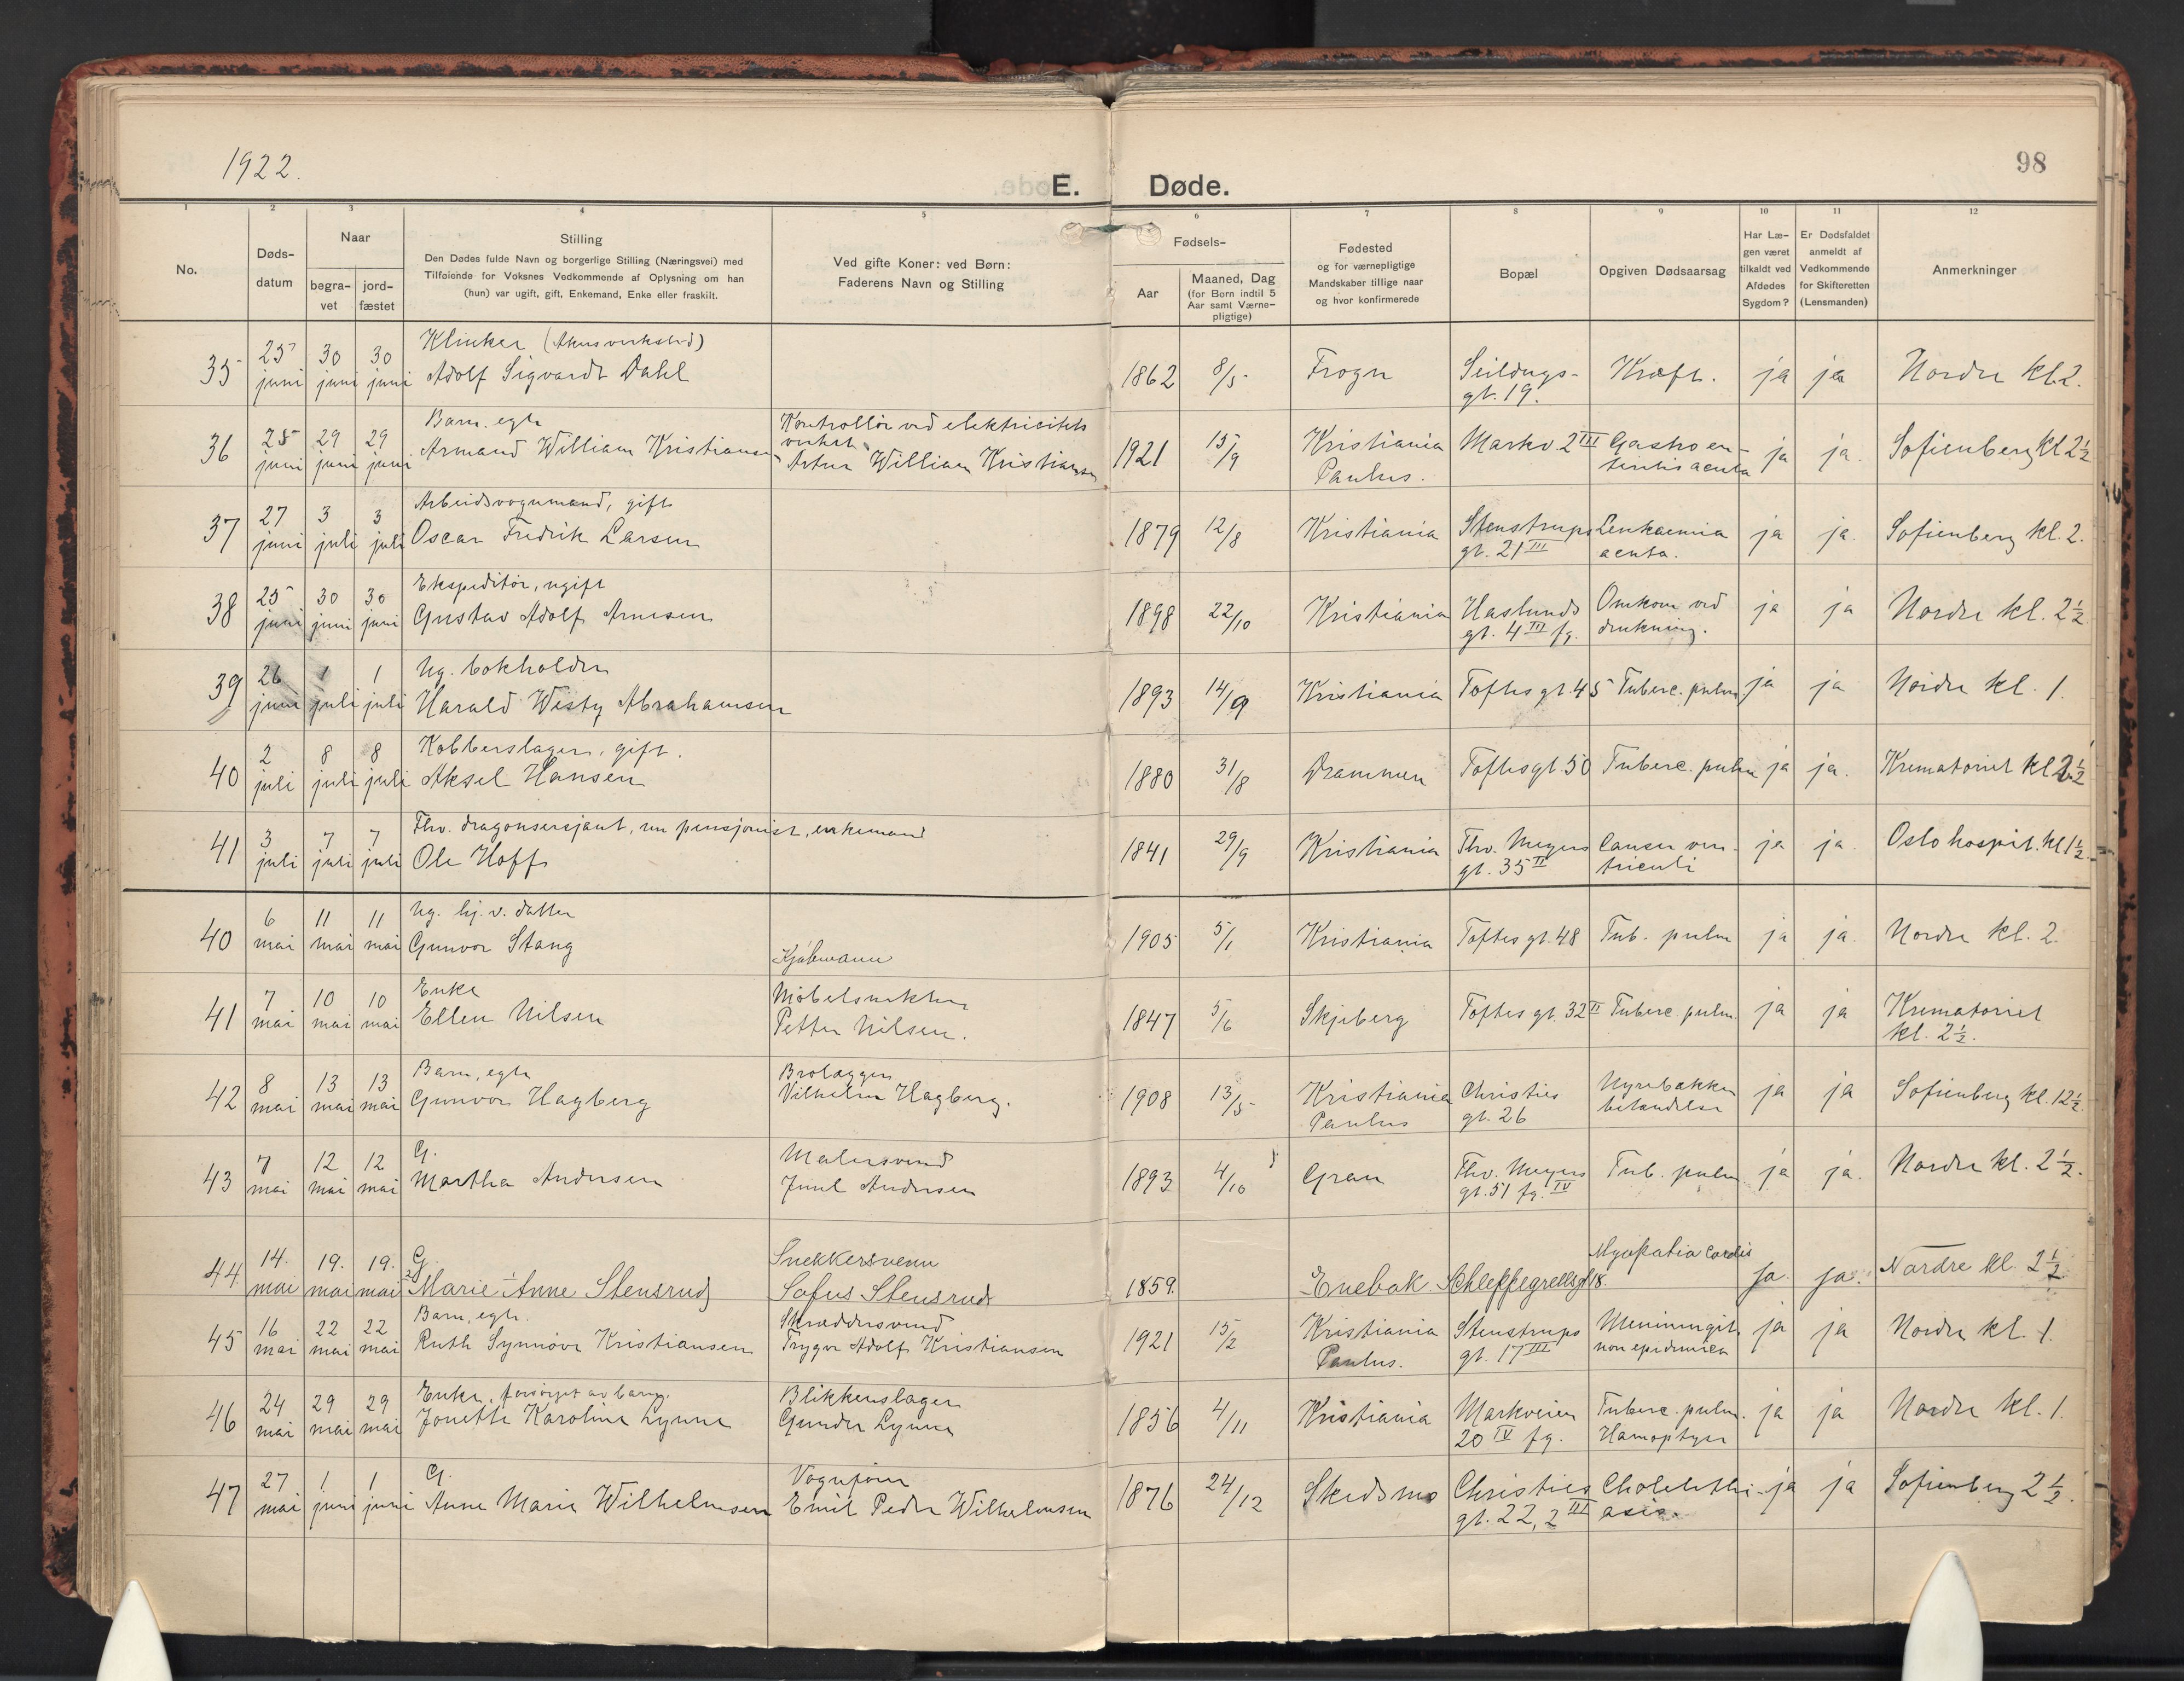 1922.
E. Døde.
98
1 2 3 4 5 6 7 8 9 10 11 12
No.
Døds-
datum
Naar
begra-
vet
jord-
fæstet
Stilling
Den Dødes fulde Navn og borgerlige Stilling (Næringsvei) med
Tilføiende for Voksnes Vedkommende af Oplysning om han
(hun) var ugift, gift, Enkemand, Enke eller fraskilt.
Ved gifte Koner: ved Børn:
Faderens Navn og Stilling
Fødsels-
Aar
Maaned, Dag
(for Børn indtil 5
Aar samt Værne-
pligtige)
Fødested
og for værnepligtige
Mandskaber tillige naar
og hvor konfirmerede
Bopæl
Opgiven Dødsaarsag
Har Læ-
gen været
tilkaldt ved
Afdødes
Sygdom?
Er Dødsfaldet
anmeldt af
Vedkommende
for Skifteretten
(Lensmanden)
Anmerkninger
Klinker (Akers verksted)
35 25 juni 30 juni 30 juni Adolf Sigvardt Dahl 1862 8/5 Frogn Seildugs- Kræft. ja ja Nordre kl. 2.
gt. 19.
Barn, egte Kontrollør ved elektricitets
verket
36 25 juni 29 juni 29 juni Armand William Kristiansen Artur William Kristiansen 1921 15/9 Kristiania Markv. 2 III Gastroen- ja ja. Sofienberg kl. 2 1/2
Paulus. teritis acuta
Arbeidsvognmand, gift
37 27 juni 3 juli 3 juli Oscar Fredrik Larsen 1879 12/8 Kristiania Stenstrups Leukaemia ja ja. Sofienberg kl. 2.
gt. 21 III acuta.
Ekspeditør, ugift
38 25 juni 30 juni 30 juni Gustav Adolf Arnesen 1898 22/10 Kristiania Haslunds Omkom ved ja ja Nordre kl. 2 1/2
gt. 4 III fg. drukning.
Ug. bokholder
39 26 juni 1 juli 1 juli Harald Westy Abrahamsen 1893 14/9 Kristiania Toftes gt. 45 Tuberc. pulm. ja ja Nordre kl. 1.
Kobberslager, gift.
40 2 juli 8 juli 8 juli Aksel Hansen 1880 31/8 Drammen Toftes gt. 50 Tuberc. pulm ja ja. Krematoriet kl. 2 1/2
Fhv. dragonsersjant, nu pensjonist, enkemand
41 3 juli 7 juli 7 juli Ole Hoff 1841 29/9 Kristiania Thv. Meyers Cancer ven- ja ja. Oslo hospit. kl. 1 1/2
gt. 35 II triculi
Ug. hj. v. datter
40 6 mai 11 mai 11 mai Gunvor Stang 1905 5/1 Kristiania Toftes gt. 48 Tub. pulm ja ja. Nordre kl. 2.
Kjøbmann
Enke Møbelsnekker
41 7 mai 10 mai 10 mai Ellen Nilsen Petter Nilsen. 1847 5/6 Skjeberg Toftes gt. 32 II Tuberc. pulm. ja ja Krematoriet
kl. 2 1/2.
Barn, egte Brolægger
42 8 mai 13 mai 13 mai Gunvor Hagberg Vilhelm Hagberg. 1908 13/5 Kristiania Christies Nyrebækken ja ja Sofienberg kl. 12 1/2
Paulus gt. 26 betændelse
G. Malersvend
43 7 mai 12 mai 12 mai Martha Andersen Juul Andersen 1893 4/10 Gran Thv. Meyers Tub. pulm. ja ja. Nordre kl. 2 1/2.
gt. 51 fg. IV
G. Snekkersvenn Myopatia Cordis
44. 14. mai 19. mai 19. mai 2 Marie 1 Anne Stensrud Sofus Stensrud 1859. Enebak. Schleppegrellsgt 18. ja. ja. Nordre kl. 2 1/2
Barn, egte. Skræddersvend
45 16 mai 22 mai 22 mai Ruth Synnøve Kristiansen Trygve Adolf Kristiansen 1921 15/2 Kristiania Stenstrups Meniningit. ja ja Nordre kl. 1.
Paulus. gt. 17 III non epidemica
Enke, forsørget av barn. Blikkenslager
46 24 mai 29 mai 29 mai Jonette Karoline Lynne Gunder Lynne 1856 4/11 Kristiania Markveien Tuberc. pulm. ja ja Nordre kl. 1.
20 IV fg. Hæmoptyse
G. Vognfører
47 27 mai 1 juni 1 juni Anne Marie Wilhelmsen Emil Peder Wilhelmsen 1876 24/12 Skedsmo Christies Cholelithi- ja ja Sofienberg 2 1/2.
gt. 22, 2 III asis.